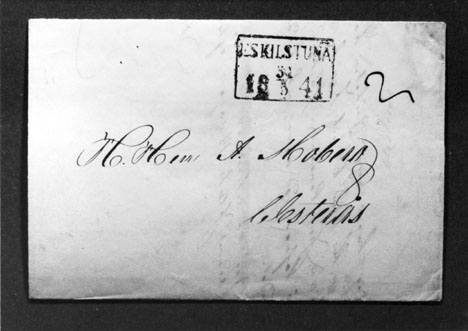 ESKILSTUNA
31
18 3 41
2
H. Herr A. Moberg
Westerås